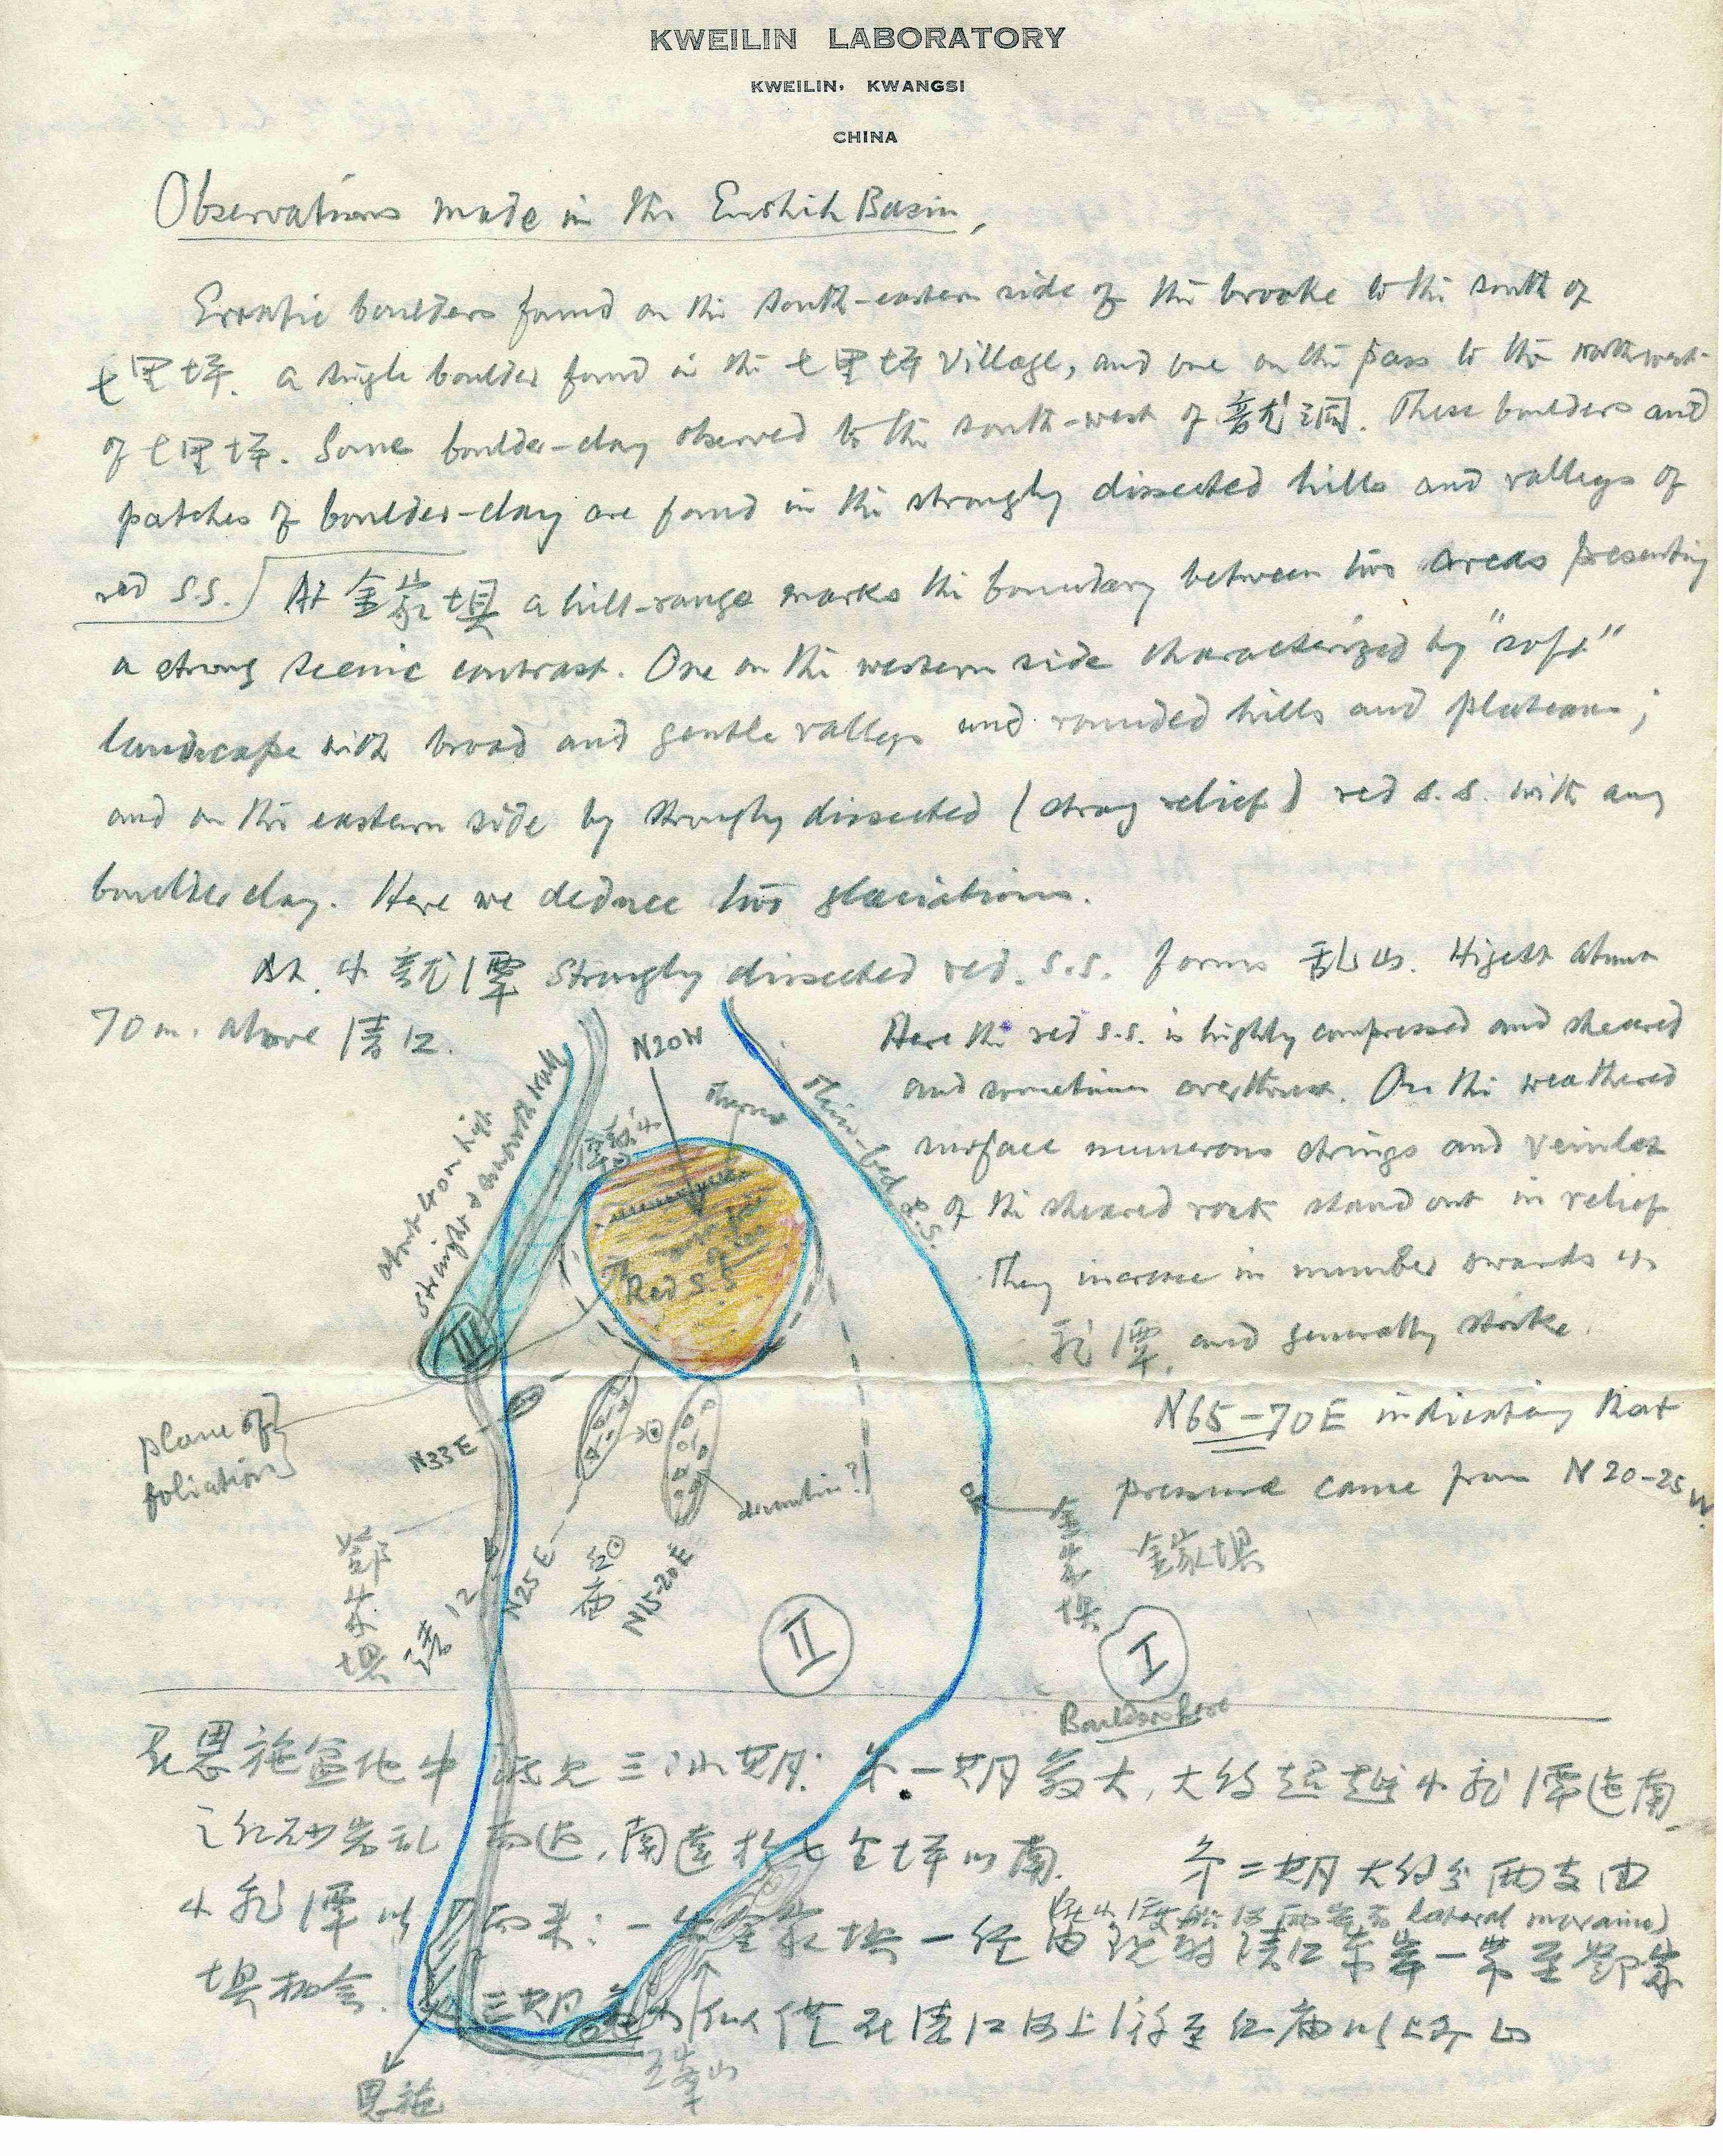 KWEILIN LABORATORY
KWEILIN, KWANGSI
CHINA
Observations made in the Enshih Basin,
Erratic boulders found on the south-eastern side of the brooke to the south of
七里坪. a single boulder found in the 七里坪 village, and one on the pass to the northwest
of 七里坪. Some boulder-clay observed to the south-west of 龙洞. These boulders and
patches of boulder-clay are found in the strongly dissected hills and valleys of
red s.s. At 金家坝 a hill-range marks the boundary between two areas presenting
a strong scenic contrast. One on the western side characterized by "soft"
landscape with broad and gentle valleys and rounded hills and plateaus;
and on the eastern side by strongly dissected (strong relief) red s.s. with any
boulder clay. Here we deduce two glaciations.
At 小龙潭 Strongly dissected red. s.s. forms 乱山. Higest about
70 m. above 清江.
Here the red s.s. is highly compressed and sheared
and sometimes overthrust. On the weathered
surface numerous strings and veinlets
of the sheared rock stand out in relief
They increase in number towards 小
龙潭, and generally strike
N65-70E indicating that
pressure came from N20-25W.
N20W
Thrust
Thin-bed s.s.
about 40 m high
straight & smooth wall
小龙潭
Red s.s
III
plane of
foliation
N33E
N25E
N15-20E
drumlin?
红庙
清江
金家坝
金家坝
II
I
Boulders here
在恩施盆地中 三冰期: 第一期最大, 大约超越小龙潭迤南
之红砂岩乱 南达于七里坪以南. 第二期大约分两支由
小龙潭以 而来: 一 金家坝 一经 清江东岸一带至邓家
lateral moraine)
坝 三期 似仅在清江河上游至红庙以上
五峰山
恩施